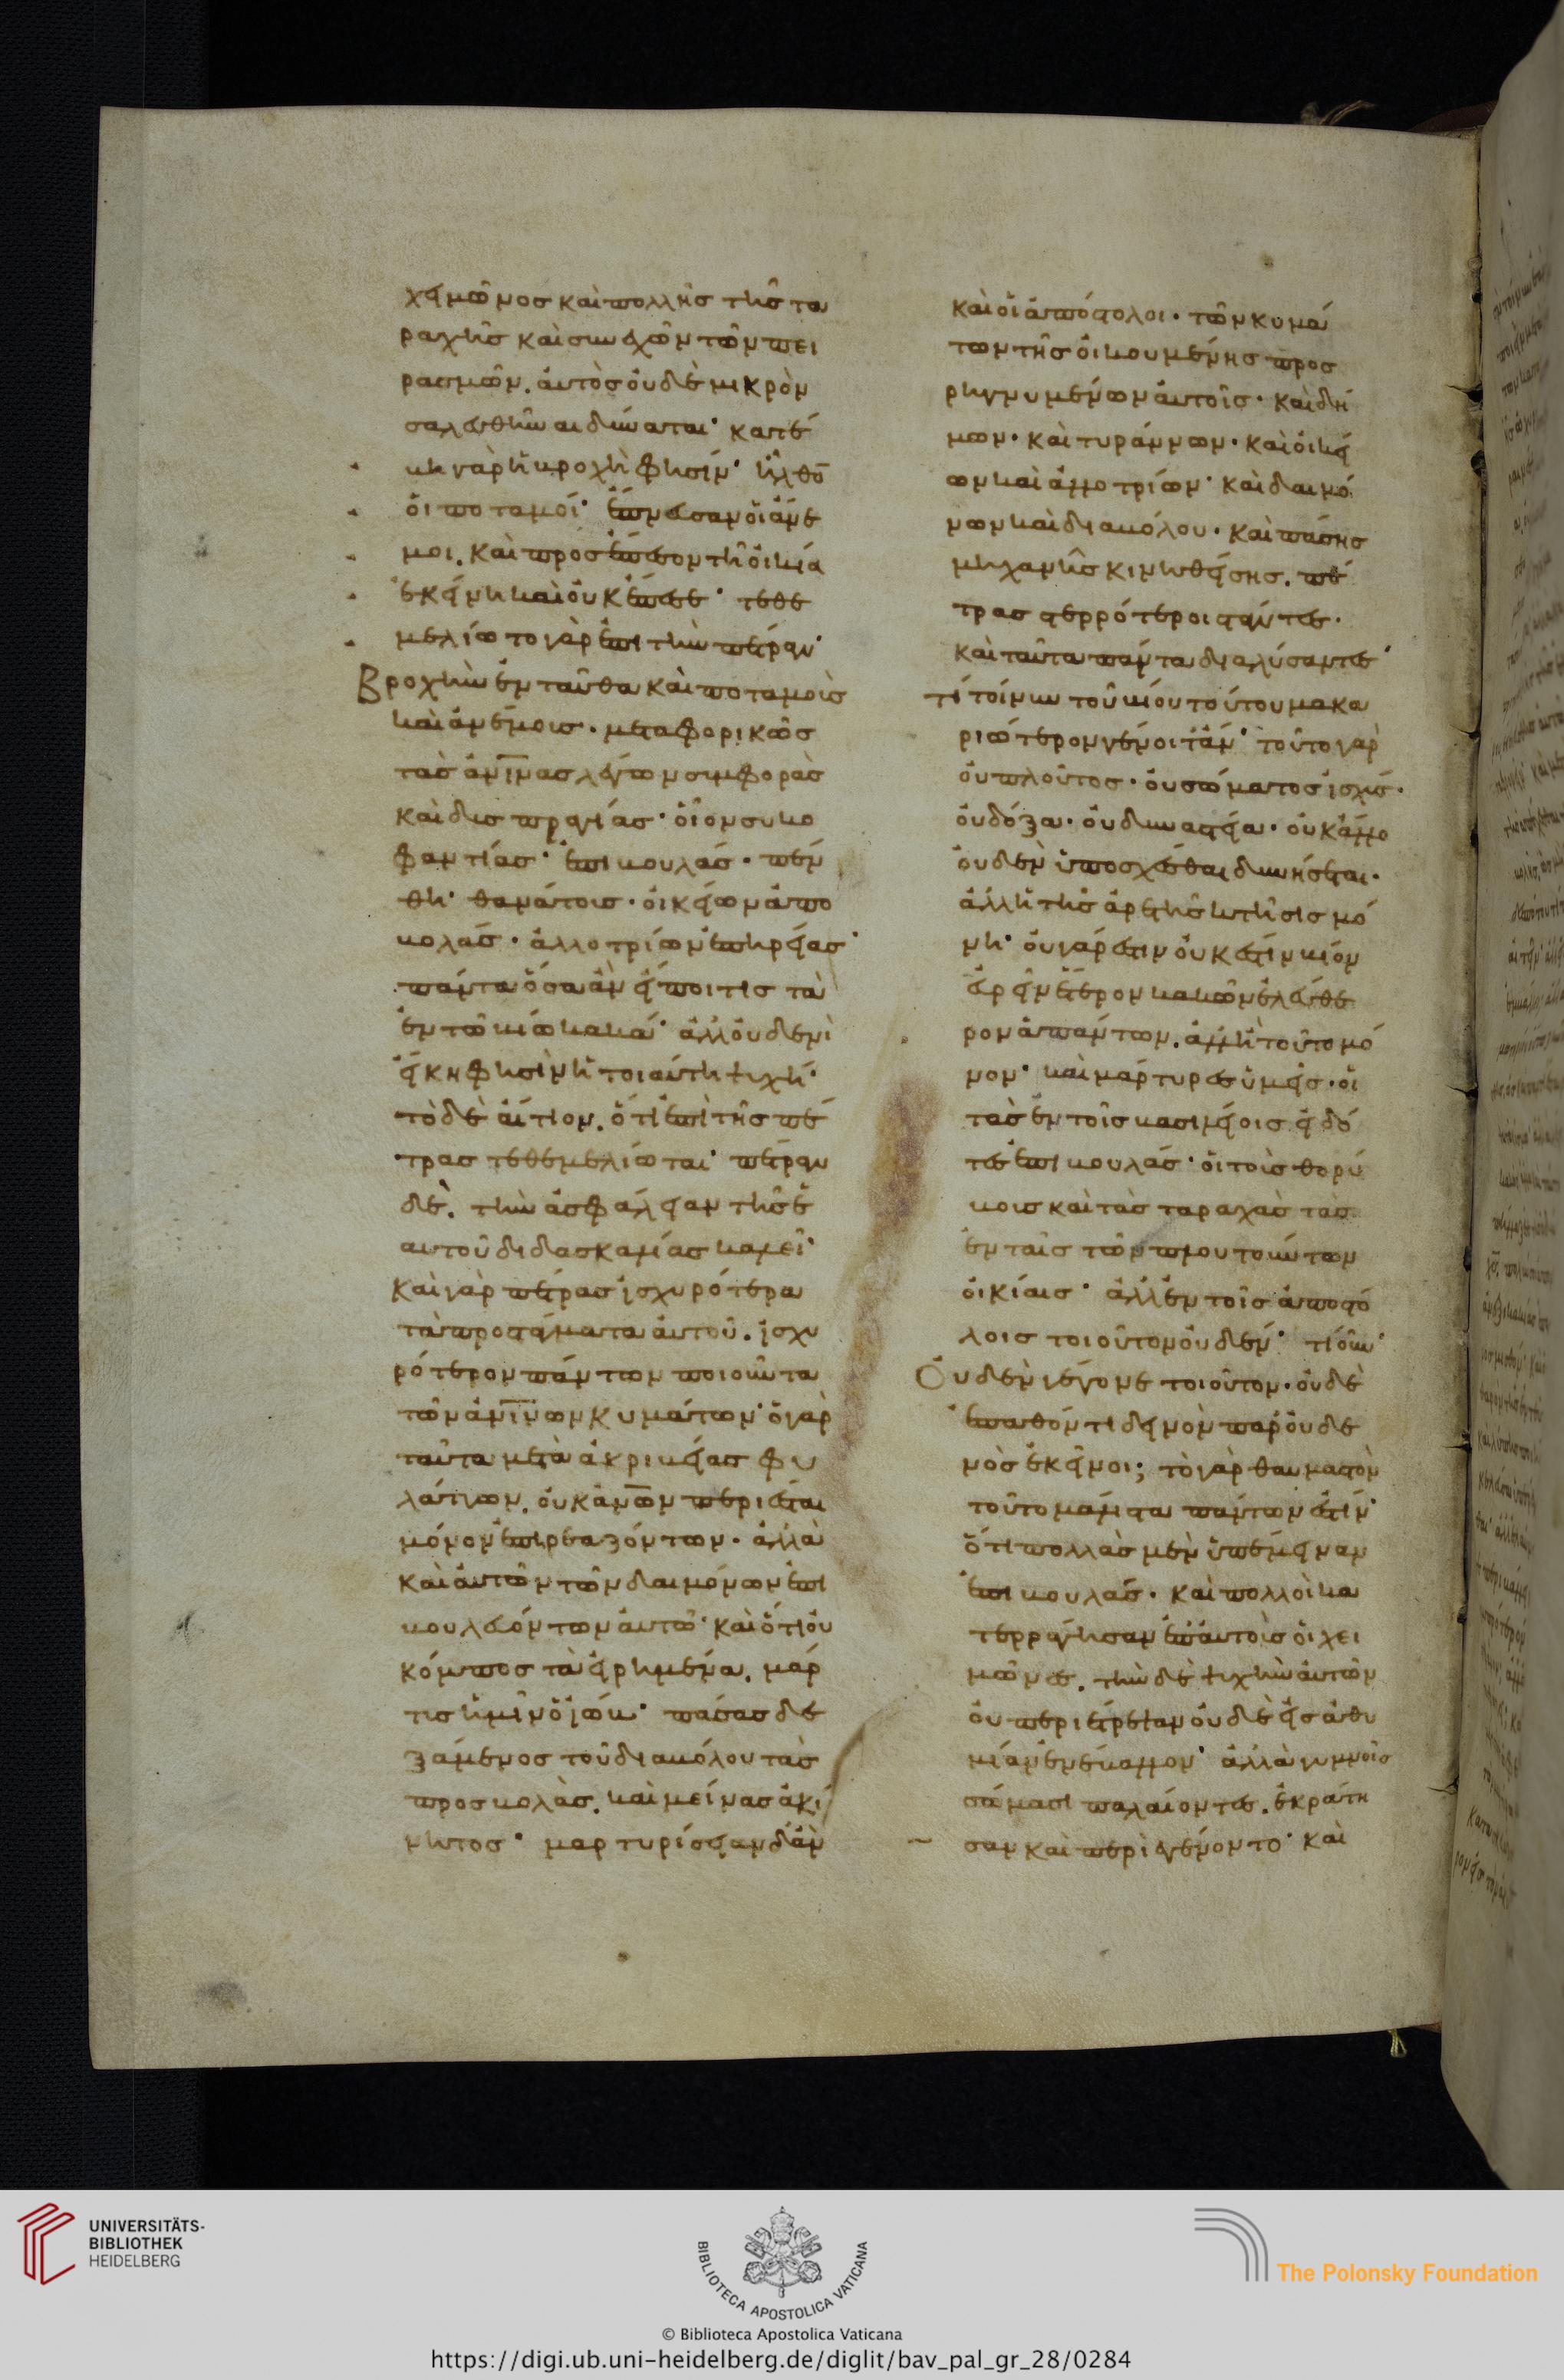 χειμῶνος καὶ πολλῆς τῆς τα
ραχῆς καὶ συνεχῶν τῶν πει
ρασμῶν. αὐτὸς οὐδὲ μικρὸν
σαλευθῆναι δύναται· κατέ
βη γὰρ ἡ βροχὴ φησίν· ἦλθο̄
οἱ ποταμοί· ἔπνευσαν οἱ ἄνε
μοι. καὶ προσέπεσον τῇ οἰκίᾳ
ἐκείνῃ καὶ οὐκ ἔπεσε· τεθε
μελίωτο γὰρ ἐπὶ τὴν πέτραν·
Βροχὴν ἐνταῦθα καὶ ποταμοὺς
καὶ ἀνέμους· μεταφορικῶς
τὰς ἀνίνας λέγων συμφορὰς
καὶ δυσπραγίας· οἷον συκο
φαντίας· ἐπιβουλάς· πέν
θη· θανάτους· οἰκείων ἀπο
βολάς· ἀλλοτρίων ἐπηρείας·
πάντα ὅσα ἂν εἴποι τις τὰ
ἐν τῷ βίῳ κακά· ἀλλ' οὐδενὶ
εἴκη φησὶν ἡ τοιαύτη ψυχή·
τὸ δὲ αἴτιον. ὅτι ἐπὶ τῆς πέ
τρας τεθεμελίωται· πέτραν
δὲ. τὴν ἀσφάλειαν τῆς ἑ
αυτοῦ διδασκαλίας καλεῖ·
καὶ γὰρ πέτρας ἰσχυρότερα
τὰ προστάγματα αὐτοῦ. ἰσχυ
ρότερον πάντων ποιοῦντα
τῶν ἀνίνων κυμάτων· ὁ γὰρ
ταῦτα μετὰ ἀκριβείας φυ
λάττων. οὐκ ἀνω̄ν περιέσται
μόνον ἐπηρεαζόντων· ἀλλὰ
καὶ αὐτῶν τῶν δαιμόνων ἐπι
βουλευόντων αὐτῷ· καὶ ὅτι οὐ
κόμπος τὰ εἰρημένα. μάρ
τυς ἡμῖν ὁ ἰώβ· πάσας δε
ξάμενος τοῦ διαβόλου τὰς
προσβολὰς. καὶ μείνας ἀκί
νητος· μαρτυρήσειαν δ' ἂν
καὶ οἱ ἀπόστολοι· τῶν κυμά
των τῆς οἰκουμένης προσ
ρηγνυμένων αὐτοῖς· καὶ δή
μων· καὶ τυράννων· καὶ οἰκεί
ων καὶ ἀλλοτρίων· καὶ δαιμό
νων καὶ διαβόλου· καὶ πάσης
μηχανῆς κινηθείσης. πέ
τρας στερρότεροι στάντες·
καὶ ταῦτα πάντα διαλύσαντες·
τί τοίνυν τοῦ βίου τούτου μακα
ριώτερον γένοιτ' ἄν· τοῦτο γὰρ
οὐ πλοῦτος· οὐ σώματος ἰσχύς·
οὐ δόξα· οὐ δυναστεία· οὐκ ἄλλο
οὐδὲν ὑποσχέσθαι δυνήσεται·
ἀλλ' ἢ τῆς ἀρετῆς κτῆσις μό
νη· οὐ γάρ ἐστιν οὐκ ἔστιν βίον
εὑρεῖν ἕτερον κακῶν ἐλεύθε
ρον ἁπάντων. ἀλλ' ἢ τοῦτο μό
νον· καὶ μάρτυρες ὑμεῖς· οἱ
τὰς ἐν τοῖς βασιλείοις εἰδό
τες ἐπιβουλάς· οἱ τοὺς θορύ
βους καὶ τὰς ταραχὰς τὰς
ἐν ταῖς τῶν πλουτούντων
οἰκίαις· ἀλλ' ἐν τοῖς ἀποστό
λοις τοιοῦτον οὐδέν· τί οὖν·
Οὐδὲν γέγονε τοιοῦτον· οὐδὲ
ἔπαθόν τι δεινὸν παρ' οὐδε
νὸς ἐκεῖνοι; τὸ γὰρ θαυμαστὸν
τοῦτο μάλιστα πάντων ἐστίν·
ὅτι πολλὰς μὲν ὑπέμειναν
ἐπιβουλάς· καὶ πολλοὶ κα
τερράγησαν ἐπ' αὐτοὺς οἱ χει
μῶνες. τὴν δὲ ψυχὴν αὐτῶν
οὐ περιέτρεψαν οὐδὲ εἰς ἀθυ
μίαν ἐνέβαλλον· ἀλλὰ γυμνοῖς
σώμασι παλαίοντες. ἐκράτη
σαν καὶ περιεγένοντο· καὶ
UNIVERSITÄTS-
BIBLIOTHEK
HEIDELBERG
BIBLIOTECA APOSTOLICA VATICANA
The Polonsky Foundation
© Biblioteca Apostolica Vaticana
https://digi.ub.uni-heidelberg.de/diglit/bav_pal_gr_28/0284